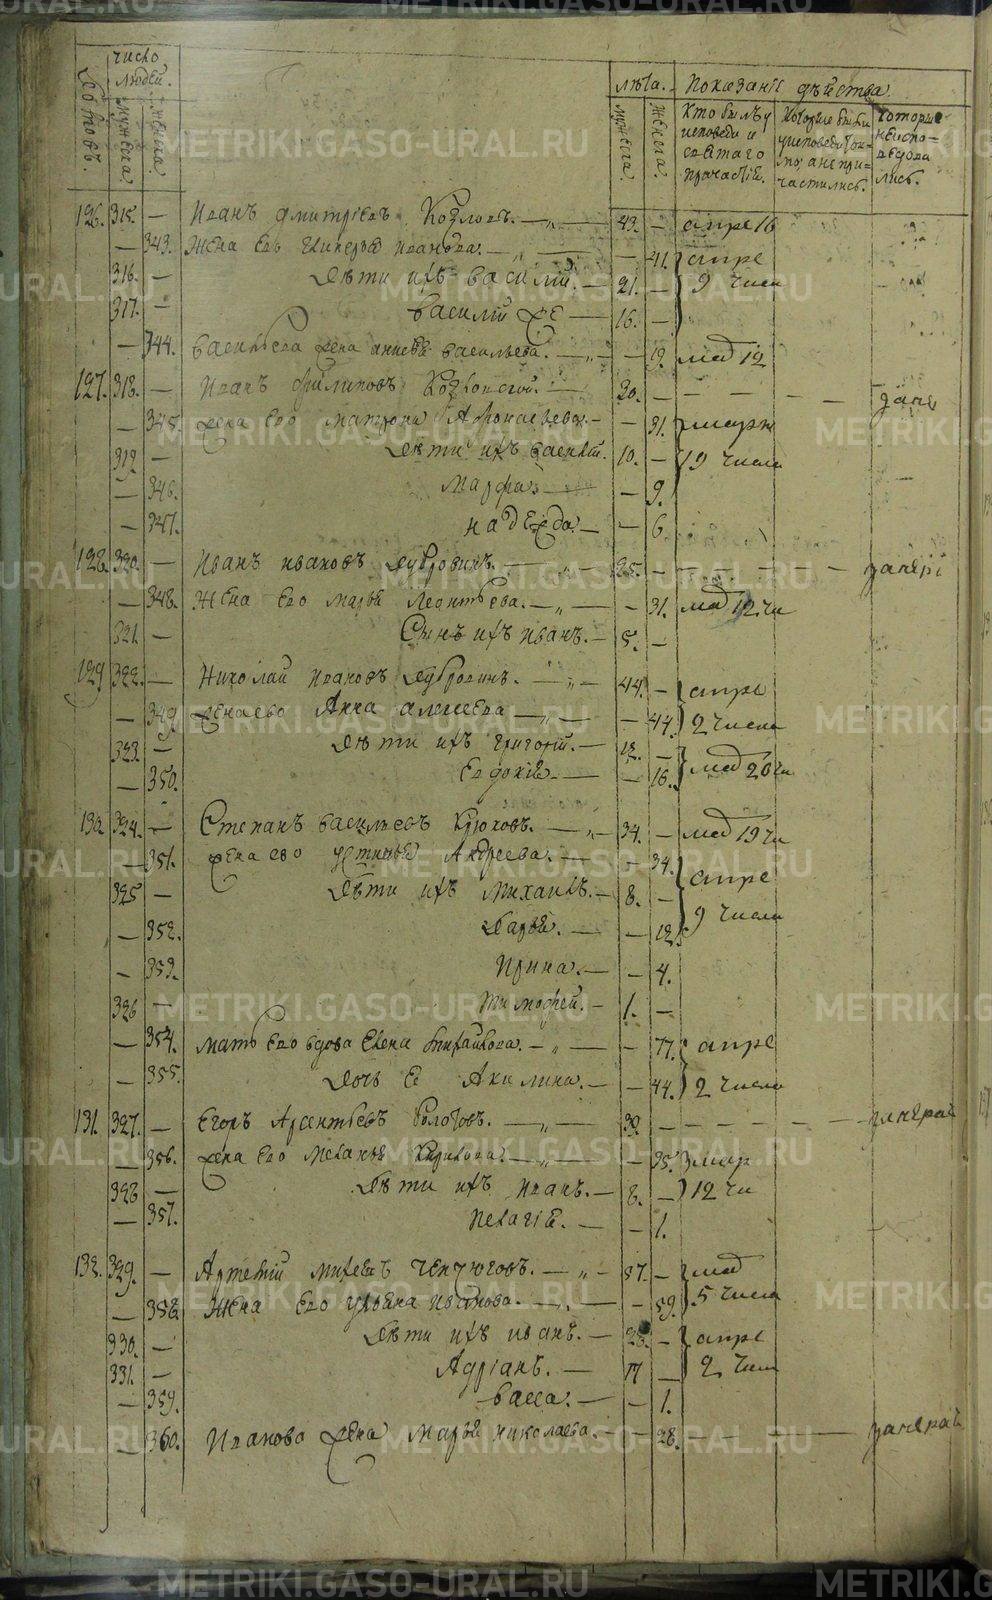 число людей.
дворовъ. мужеска. женска.
лѣта. Показаніе дѣйства
мужеска. женска. Кто былъ у исповеди и святаго причастіе. Которые были у исповеди токмо, а не причастились. Которые не исповедовались.
126. 315. — Иванъ Дмитріевъ Козловъ. — 43. — апре 16
— 343. Жена его Гликерья Иванова. — — 41. апре
316. — Дѣти ихъ Василий. — 21. — 9 числа
317. — Василий же — 16. —
— 344. Васильева жена Васильева. — — 19. маія 12
127. 318. — Иванъ Филиповъ — 30. — — — —
— 345. жена его Матрона Афонасьева — — 31. марта
319. — Дѣти ихъ Василій. 10. — 19 числа
— 346. Марфа. — — 9.
— 347. Надежда. — — 6.
128. 320. — Иванъ Ивановъ Дубровинъ. — 35. — — — —
— 348. Жена его Марья Леонтьева. — — 31. маія 12 чи
321. — Сынъ ихъ Иванъ. — 5. —
129 322. — Николай Ивановъ Дубровинъ. — 44. — апре
— 349. жена его Анна Алексеева — — 44. 2 числа
323. — Дѣти ихъ Григорій. — 12. —
— 350. Евдокія. — — 16. маія 20 чи
130. 324. — Степанъ Васильевъ Крюковъ. — 34. — маія 19 чи
— 351. жена его Устинья Андреева. — — 34. апре
325 — Дѣти ихъ Михаилъ. — 8. —
— 352. Дарья. — — 12. 9 числа
— 353. Ирина. — — 4.
326 — Тимофей. — 1. —
— 354. мать его вдова Елена Михайлова. — — 77. апре
— 355. Дочь ее Акилина. — — 44. 2 числа
131. 327. — Егоръ Арсентьевъ Болотовъ. — 30. — — — —
— 356. жена его Меланья Кирилова. — — 35. мар
328 — Дѣти ихъ Иванъ. — 8. — 12 чи
— 357. Пелагія. — — 1.
132. 329. — Артемій Михеевъ Чепчюговъ. — 57. — маія
— 358. Жена его Ульяна Иванова. — — 59. 5 числа
330. — Дѣти ихъ Иванъ. — — апре
331. — Адріанъ. — 17 — 2 числ
— 359. Васса. — — 1.
— 360. Иванова жена Марья Николаева. — — 28. — — —
METRIKI.GASO-URAL.RU